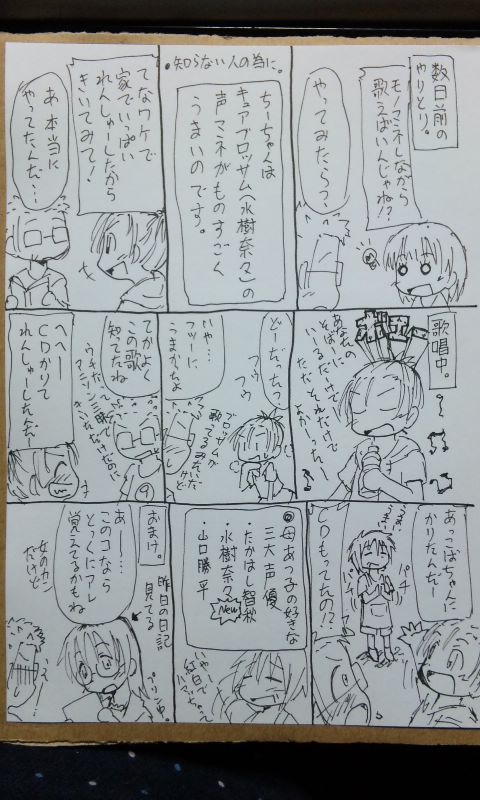 数日前の
やりとり。
モノマネしながら
歌えばいんじゃね!?
やってみたらっ?
・知らない人の為に。
ちーちゃんは
キュアブロッサム(水樹奈々)の
声マネがものすごく
うまいのです。
てなワケで
家でいっぱい
れんしゅーしたから
きいてみて!
あ 本当に
やってたんだ…
歌唱中。
あなたの
そばーに
いーるだけでー
ただそれだけで
よかったー
どーだったっ?
フゥ
フゥ
いや…
フツーに
うまかったよ
ブロッサムが
歌ってるみたい
だったけど
てかよく
この歌
知ってたね
へへー
CDかりて
れんしゅーしたんだー
あっこばちゃんに
かりたんだー
CDもってたの!?
パチ
パチ
◎母あっ子の好きな
三大声優
・たかはし智秋
・水樹奈々
New
・山口勝平
いやー
紅白で
ハマっちゃって
おまけ。
昨日の日記
見てる
あー……
このコなら
とっくにアレ
覚えてるかもね
女のカン
だけど
え…